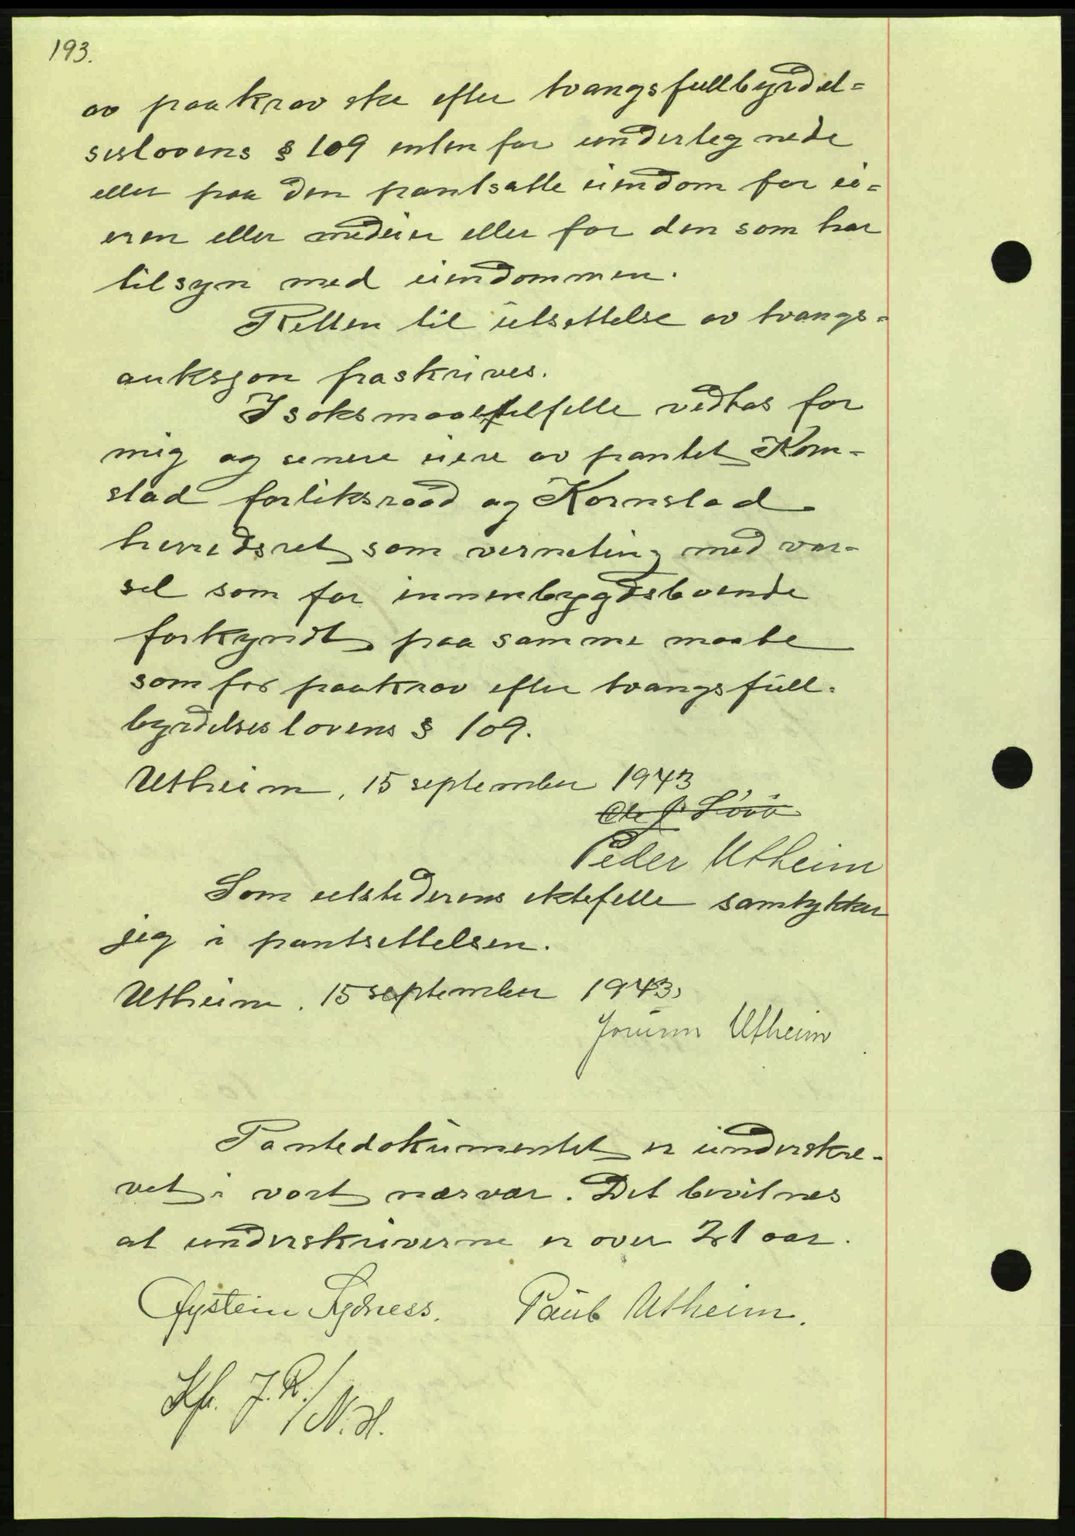 193.
av paakrav ske efter tvangsfullbyrdel=
seslovens § 109 enten for undertegnede
eller paa den pantsatte eiendom for ei=
eren eller medeier eller for den som har
tilsyn med eiendommen.
Retten til utsettelse av tvangs=
auksjon fraskrives.
I søksmaalstilfelle vedtas for
mig og senere eiere av pantet Korn-
stad forliksraad og Kornstad
herredsret som verneting med var-
sel som for innenbygdsboende
forkyndt paa samme maate
som for paakrav efter tvangsfull-
byrdelseslovens § 109.
Utheim, 15 september 1943
Peder Utheim
Som utstederens ektefelle samtykker
jeg i pantsettelsen.
Utheim, 15 september 1943,
Jorunn Utheim
Pantedokumentet er underskre-
vet i vort nærvær. Det bevitnes
at underskriverne er over 21 aar.
Øystein Sydness. Paul Utheim.
Kfr. J.R./N.H.